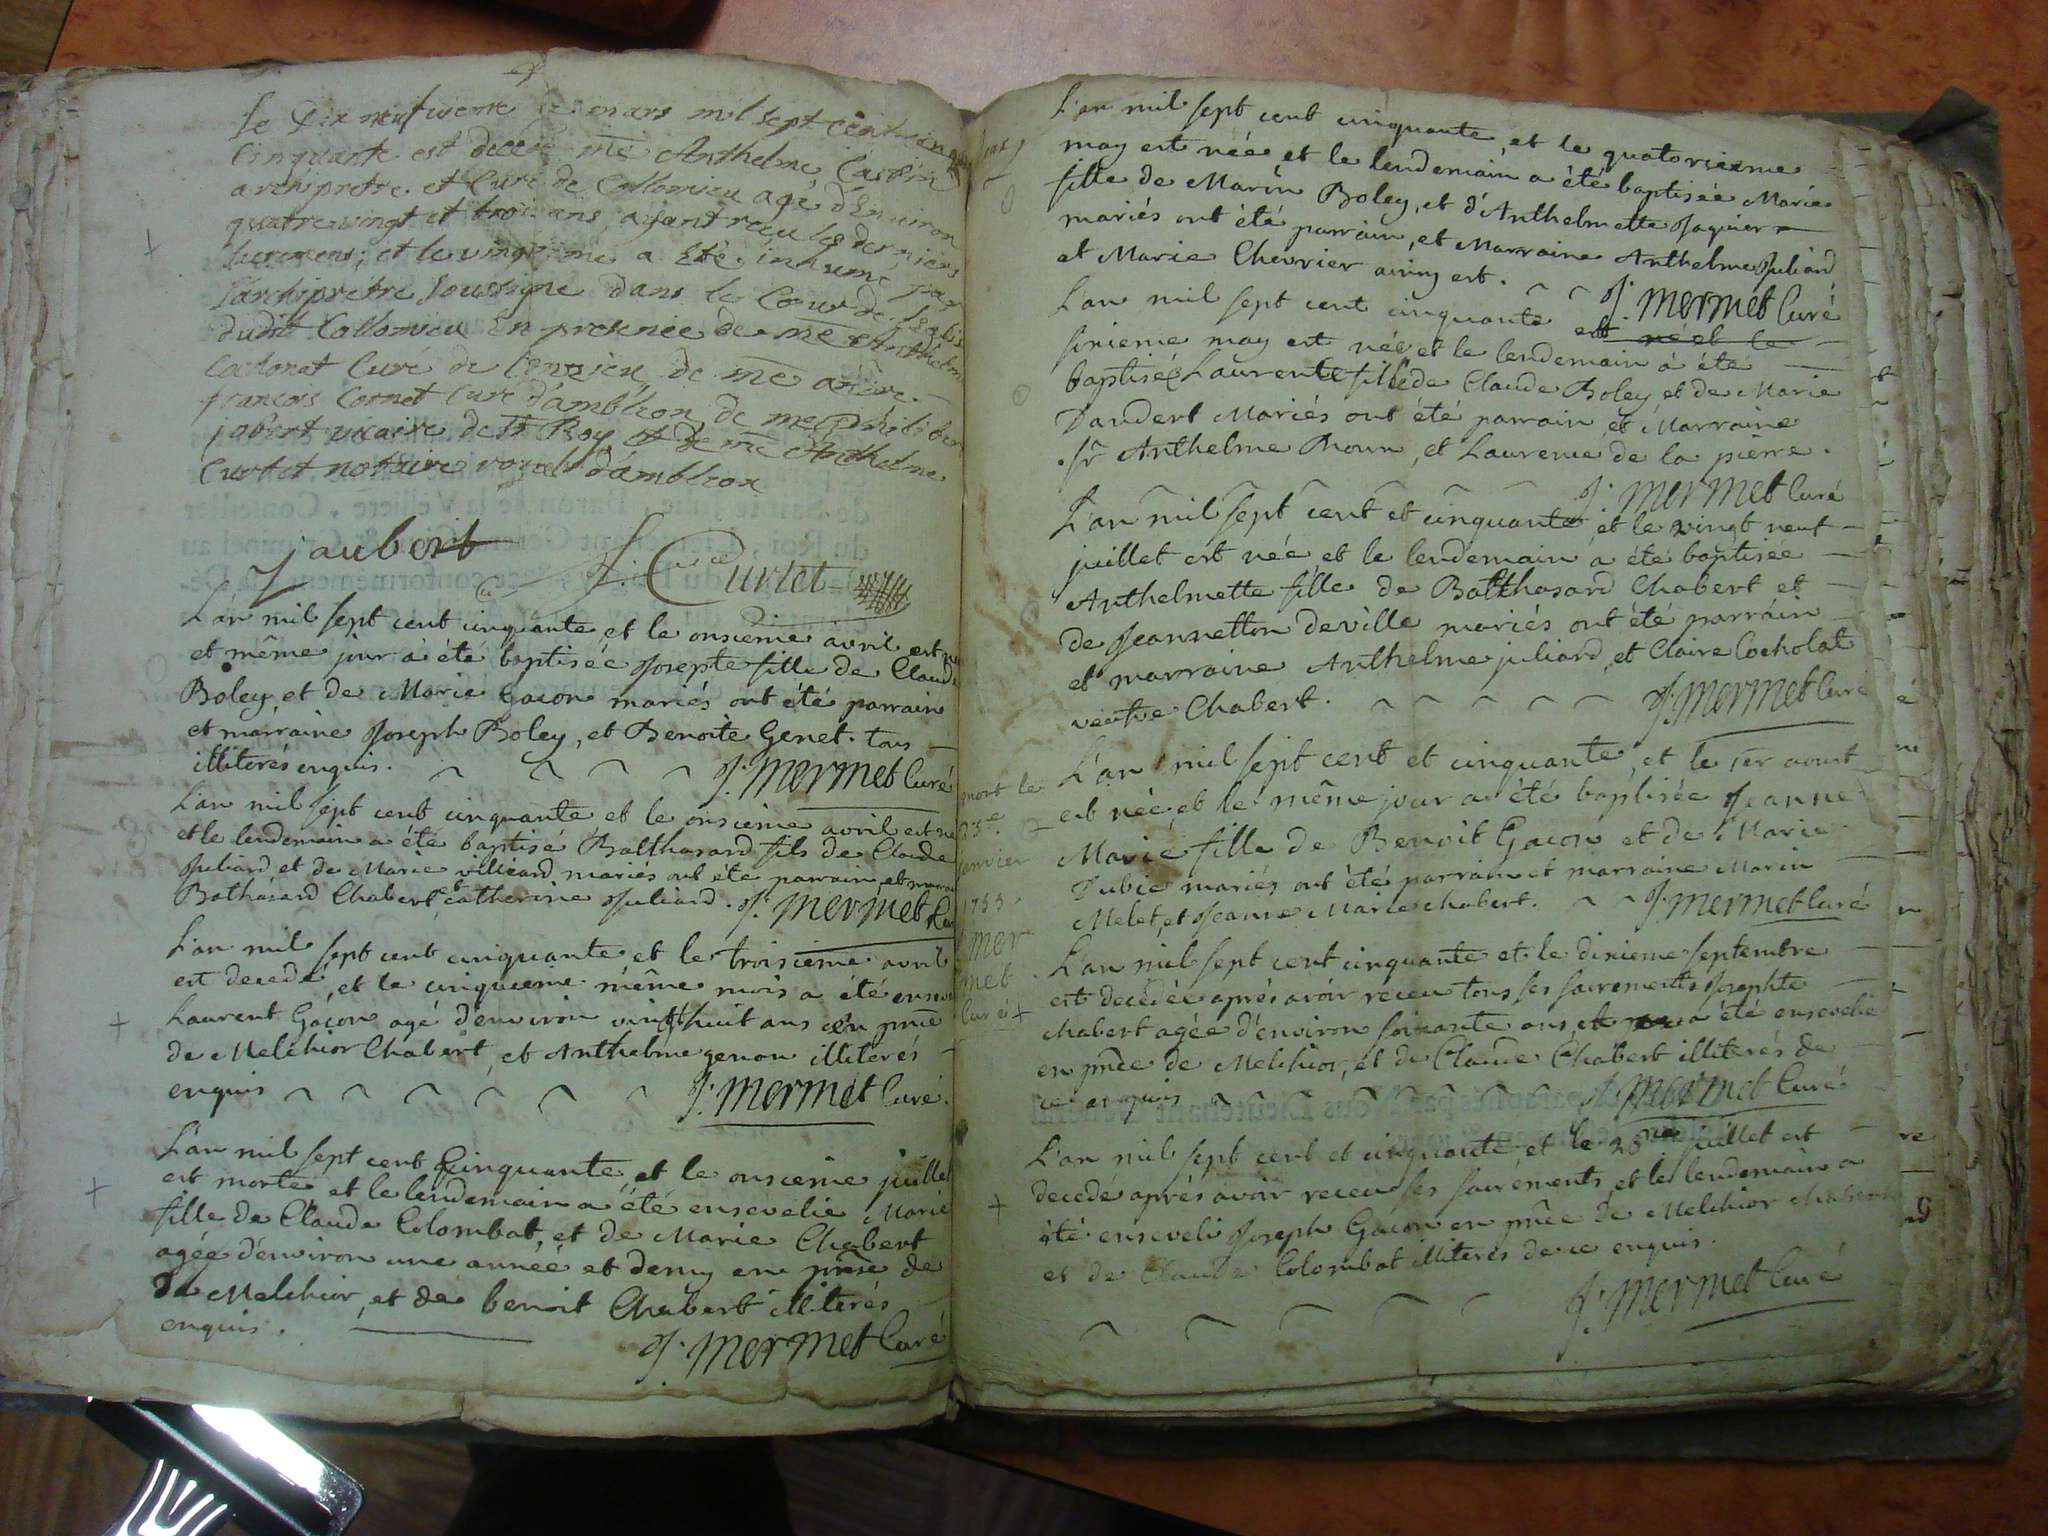 Le Dix neufvieme de mars mil sept cent
Cinquante est decedé mre Anthelme
archiprêtre et Curé de Collomieu agé d'Environ
quatre vingt et trois ans, ayant recu les derniers
sacremens, et le vingtieme a Eté inhumé par
l'archiprêtre soussigné dans le Coeur de
dudit Collomieu En presence de mre Anthelme
Curé de de mre
francois Cornet Curé d'ambléon, de mre philibert
jobert vicaire de St Boy et de mre Anthelme
Curtet notaire royal d'ambléon
jaubert
Curtet
L'an mil sept cent cinquante et le onsieme avril est
et même jour a été baptisée Josepte fille de Claude
Boley, et de Marie Gacon mariés ont été parrain
et marraine Joseph Boley, et Benoite Genet. tous
illiterés enquis.
J. Mermet Curé
L'an mil sept cent cinquante et le onsieme avril est né
et le lendemain a été baptisé Balthasard fils de Claude
Juliard, et de Marie villiard mariés ont été parrain, et
Bathasard Chabert et catherine Juliard. J. Mermet
L'an mil sept cent cinquante et le troisieme avril
est decedé, et le cinquieme même mois a été
Laurent Gacon agé d'environ vingt huit ans en pnce
de Melchior Chabert, et Anthelme genon illiterés
enquis
J. Mermet Curé.
L'an mil sept cent Cinquante, et le onsieme juillet
est morte et le lendemain a été ensevelie Marie
fille de Claude Colombat, et de Marie Chabert
agée d'environ une année et demy en pnce de
de Melchior, et de benoit Chabert illiterés
enquis.
J. Mermet Curé
L'an mil sept cent cinquante, et le quatorsieme
may est née et le lendemain a été baptisée Marie
fille de Marin Boley, et d'Anthelmette Jaquier
mariés ont été parrain, et Marraine Anthelme Juliard
et Marie Chevrier
J. Mermet Curé
L'an mil sept cent cinquante est né et le
sixieme may est née et le lendemain a été
baptisée Laurente fille de Claude Boley et de Marie
Dandert Mariés ont été parrain et Marraine
sr Anthelme et Laurence de la pierre.
J. Mermet Curé
L'an mil sept cent et cinquante et le vingt neuf
juillet est née et le lendemain a été baptisée
Anthelmette fille de Balthasard Chabert et
de Jeannetton deville mariés ont été parrain
et marraine Anthelme juliard, et Claire Cocholat
veufve Chabert.
J. Mermet Curé
mort le
23e
janvier
1753
Mer
met
Curé
L'an mil sept cent et cinquante, et le 1er aoust
est née, et le même jour a été baptisée Jeanne
Marie fille de Benoit Gacon et de Marie
Dubie mariés ont été parrain et marraine Marin
Melet, et Jeanne Marie chabert. J. Mermet Curé
L'an mil sept cent cinquante et le dixieme septembre
est decédée aprés avoir receu tous ses sacrements Josephte
chabert agée d'environ soixante ans, et a été ensevelie
en pnce de Melchior, et de Claude Chabert illiterés de
ce enquis
J. Mermet Curé
L'an mil sept cent et cinquante, et le juillet est
decedé aprés avoir receu ses sacrements, et le lendemain a
été enseveli Joseph Gacon en pnce de Melchior chabert
et de Claude Colombat illiterés de ce enquis.
J. Mermet Curé